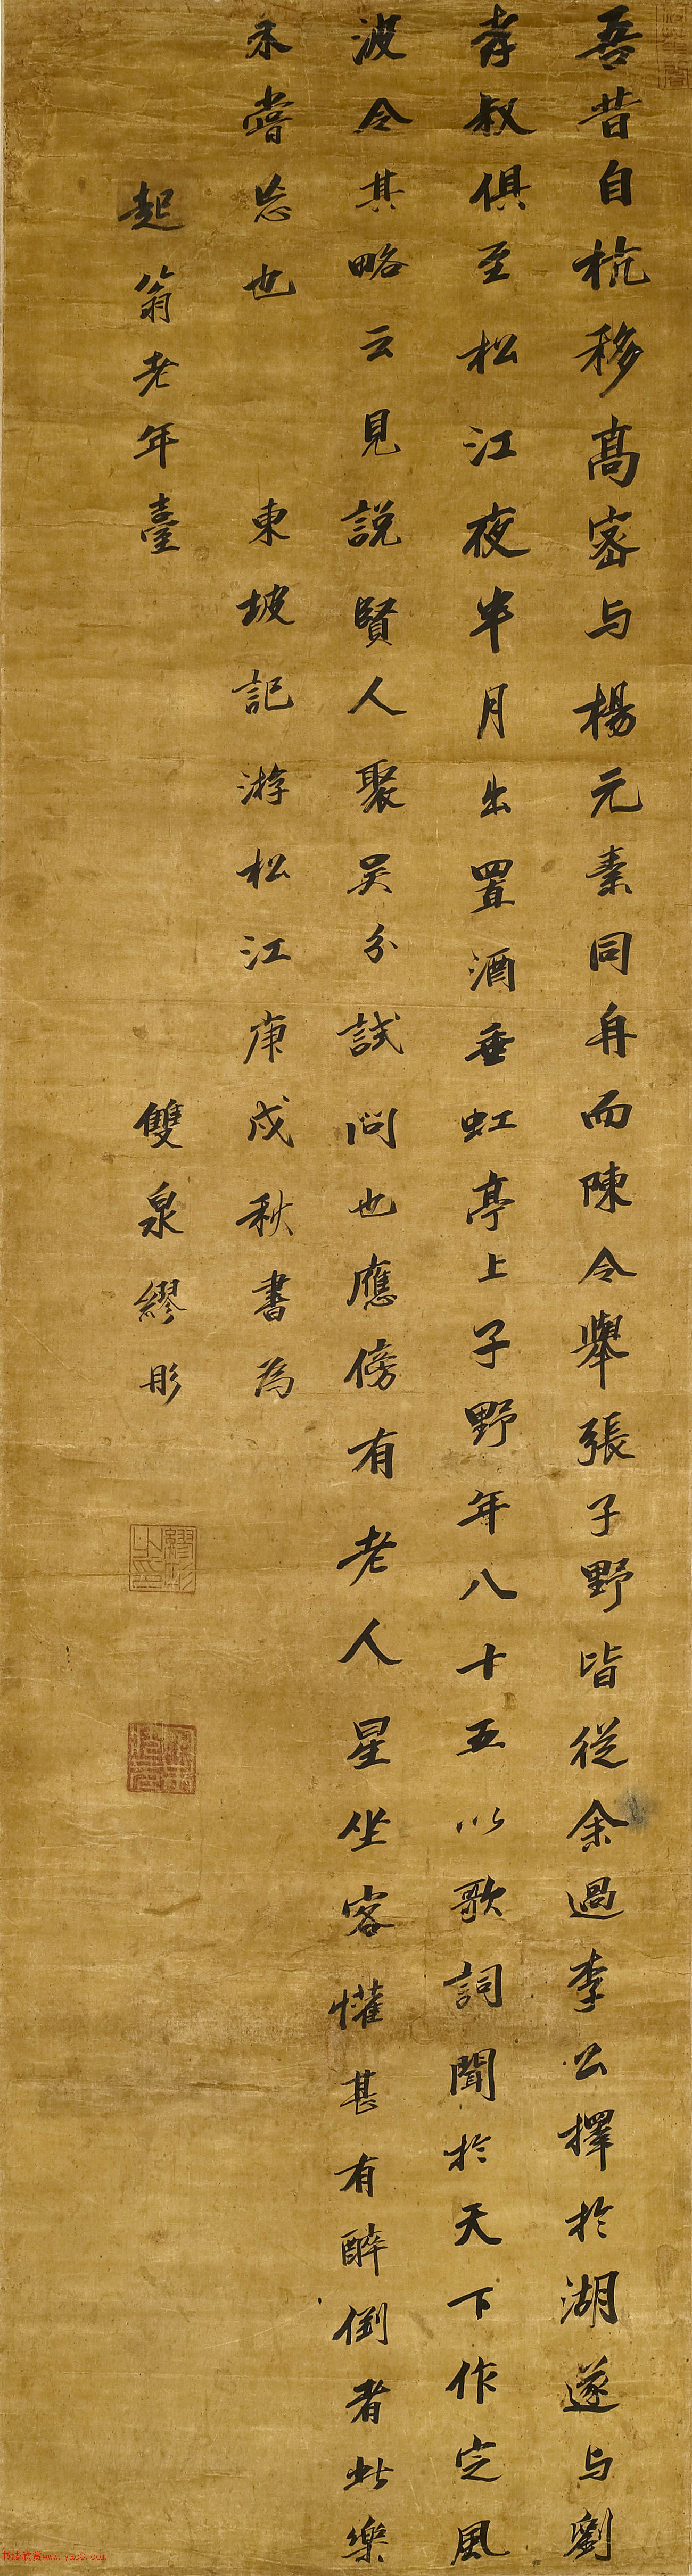 吾昔自杭移髙密与楊元素同舟而陳令舉張子野皆從余過李公擇於湖遂与劉
孝叔俱至松江夜半月出置酒垂虹亭上子野年八十五以歌詞聞於天下作定風
波令其略云見説賢人聚吴分試問也應傍有老人星坐客懽甚有醉倒者此樂
未嘗忘也 東坡記游松江庚戌秋書為
起翁老年臺 雙泉繆彤
繆彤之印
书法欣赏www.yac8.com